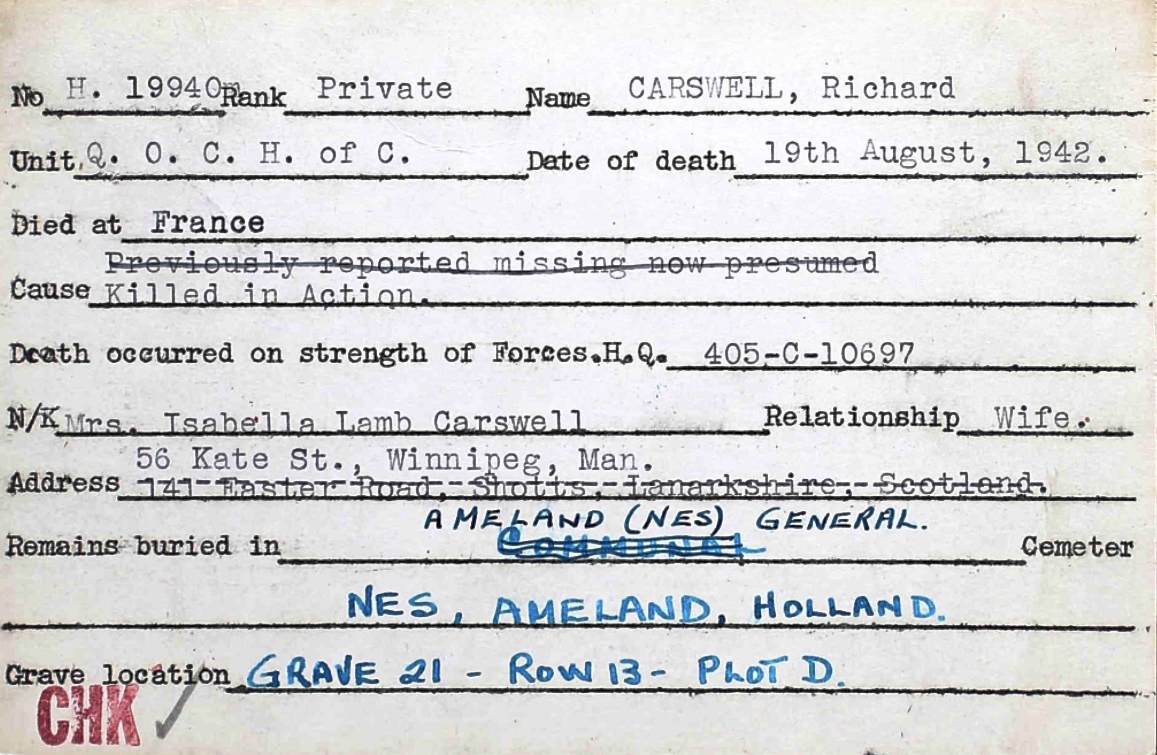 No H. 19940 Rank Private Name CARSWELL, Richard
Unit Q. O. C. H. of C. Date of death 19th August, 1942.
Died at France
Previously reported missing now presumed
Cause Killed in Action.
Death occurred on strength of Forces.H.Q. 405-C-10697
N/K Mrs. Isabella Lamb Carswell Relationship Wife.
56 Kate St., Winnipeg, Man.
Address 141 Easter Road, Shotts, Lanarkshire, Scotland.
AMELAND (NES) GENERAL.
Remains buried in COMMUNAL Cemeter
NES, AMELAND, HOLLAND.
Grave location GRAVE 21 - ROW 13 - PLOT D.
CHK